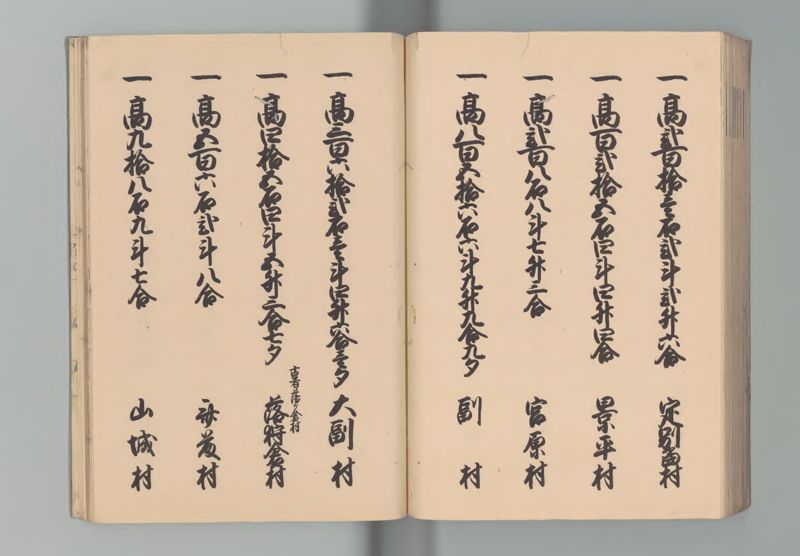 一高弐百拾壱石弐斗弐升六合 定別当村
一高百弐拾五石四斗四升四合 景平村
一高弐百八石八斗七升三合 宮原村
一高八百五拾六石六斗九升九合九夕 副村
一高三百六拾弐石壱斗四升六合壱夕 大副村
一高四拾五石四斗五升三合七夕 落狩倉村
古者落ヶ倉村
一高五百六石弐斗八合 村
一高九拾八石九斗七合 山城村